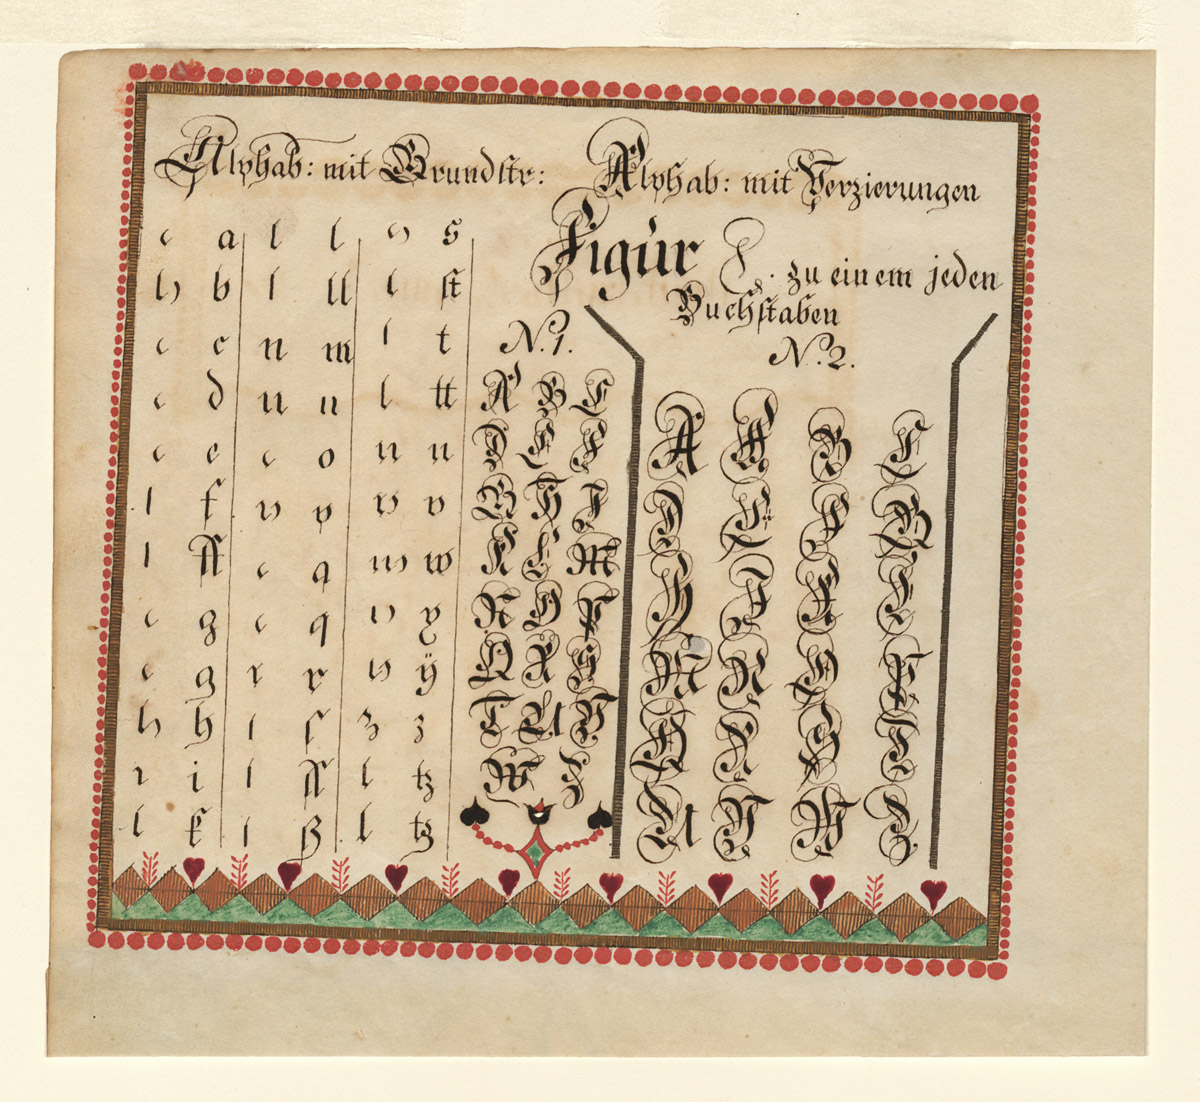 Alphab: mit Grundstr:
Alphab: mit Verzierungen
Figúr
zu einem jeden
Buchſtaben
a l s
b ll ſt
c m t
d n tt
e o u
f p v
ff q w
g q y
g r ÿ
h ſ z
i ſſ tz
k ß tz
N. 1.
A B C
D E F
G H I
K L M
N O P
Q R S
T U V
W Z
N. 2.
A B C
D E F G
H I K L
M N O P
Q R S T
U V W Z.